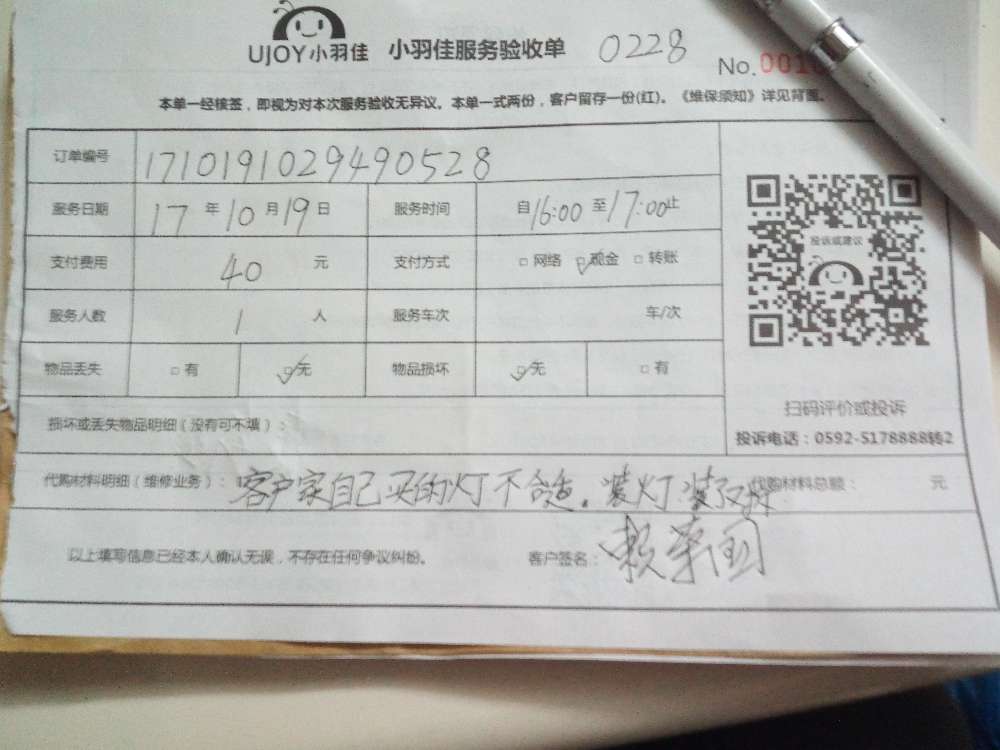 UJOY小羽佳 小羽佳服务验收单 0228
No.001
本单一经核签，即视为对本次服务验收无异议。本单一式两份，客户留存一份(红)。《维保须知》详见背面。
订单编号 17101910294905​28
服务日期 17 年 10 月 19 日 服务时间 自 16:00 至 17:00 止
支付费用 40 元 支付方式 □ 网络 □ 现金 □ 转账
投诉或建议
服务人数 1 人 服务车次 车/次
物品丢失 □ 有 □ 无 物品损坏 □ 无 □ 有
扫码评价或投诉
损坏或丢失物品明细（没有可不填）：
投诉电话：0592-5178888转2
代购材料明细（维修业务）： 客户家自己买的灯不合适。装灯装了又拆 代购材料总额： 元
以上填写信息已经本人确认无误，不存在任何争议纠纷。 客户签名： 赖荣